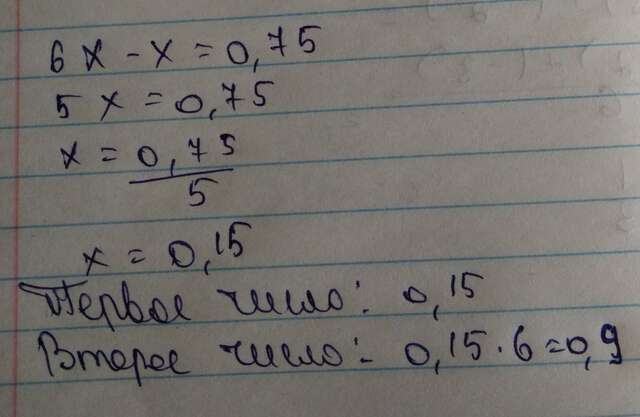 6x - x = 0,75
5x = 0,75
x = 0,75
5
x = 0,15
Первое число: 0,15
Второе число: 0,15 · 6 = 0,9